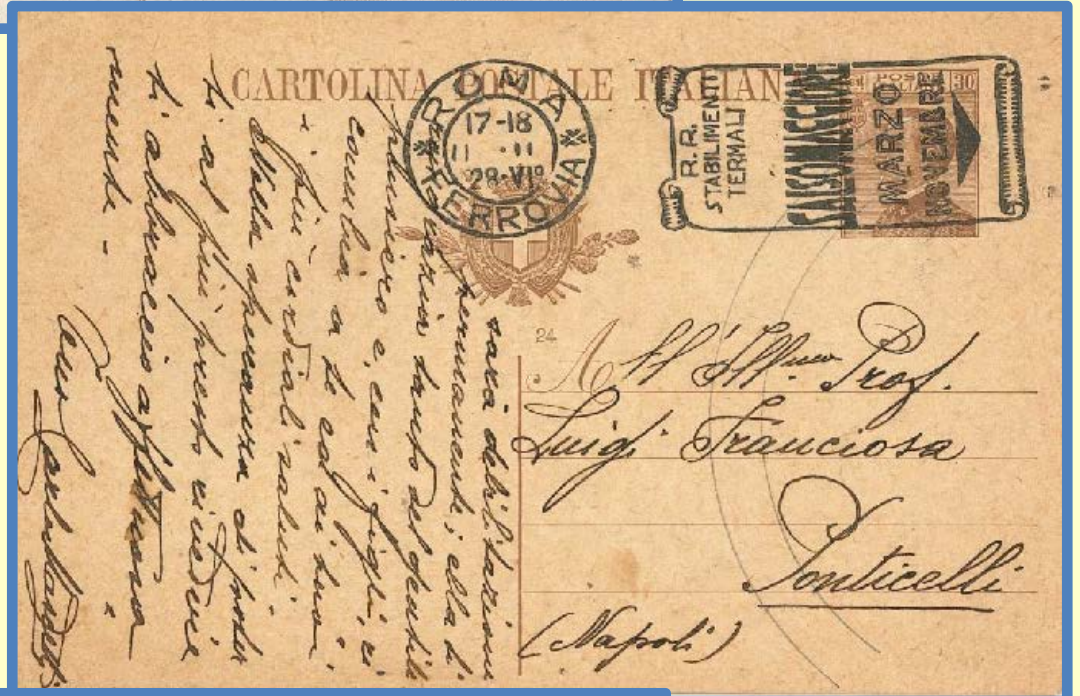 CARTOLINA POSTALE ITALIANA
ROMA
17-18
11 II
28·VIº
FERROVIA
R.R.
STABILIMENTI
TERMALI
SALSOMAGGIORE
MARZO
NOVEMBRE
30
24
All' Ill.mo Prof.
Luigi Franciosa
Ponticelli
(Napoli)
sarà debilitazione
permanente; ella ti
tanto del gentile
pensiero e, con i figli,
a te ed ai tuoi
i più cordiali saluti.
Nella speranza di poter
ti al più presto rivedere
ti abbraccio affettuosa
mente -